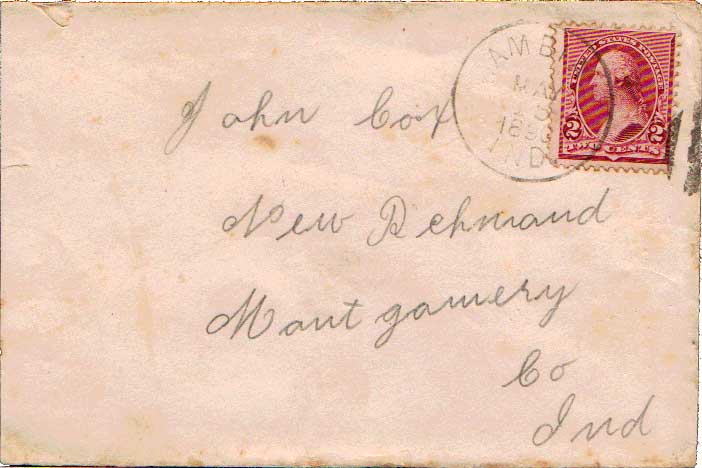 AMB
MAY
IND
UNITED STATES POSTAGE
2 2
TWO CENTS
John Cox
New Richmond
Montgomery
Co
Ind